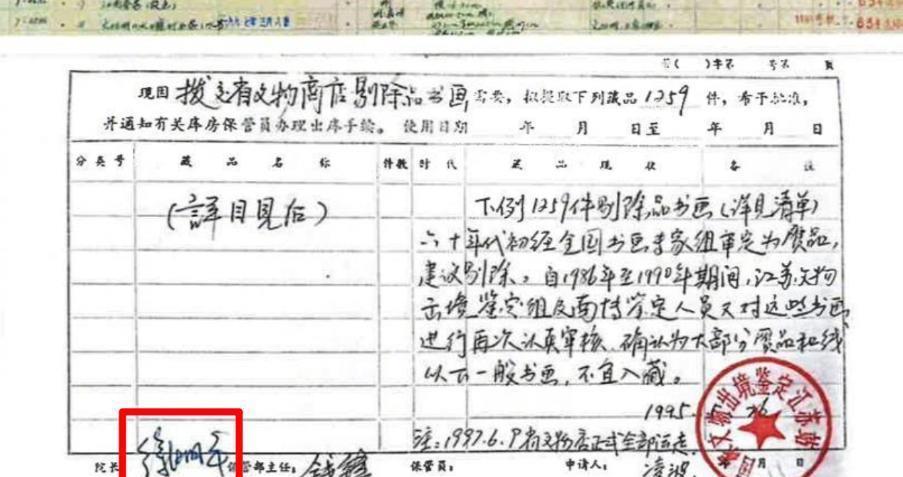 现因拨交省文物商店剔除品书画,需要,拟提取下列藏品1259件,希予批准,
并通知有关库房保管员办理出库手续。 使用日期 年 月 日至 年 月 日
分类号 藏品名称 件数 时代 藏品现状 备注
(詳目見后)
下例1259件剔除品书画(详見清单)
六十年代初经全国书画专家组审定为贋品,
建议剔除。自1986年至1990年期间,江苏文物
出境鉴定组及两博鉴定人员又对这些书画
进行再次认真审核,确认为大部分贋品和线
以下一般书画,不宜入藏。
1995.
注:1997.6.9省文物店正式全部运走
院长 徐湖平 保管部主任: 钱锋 保管员: 申请人: 凌波 月 日
文物出境鉴定江苏